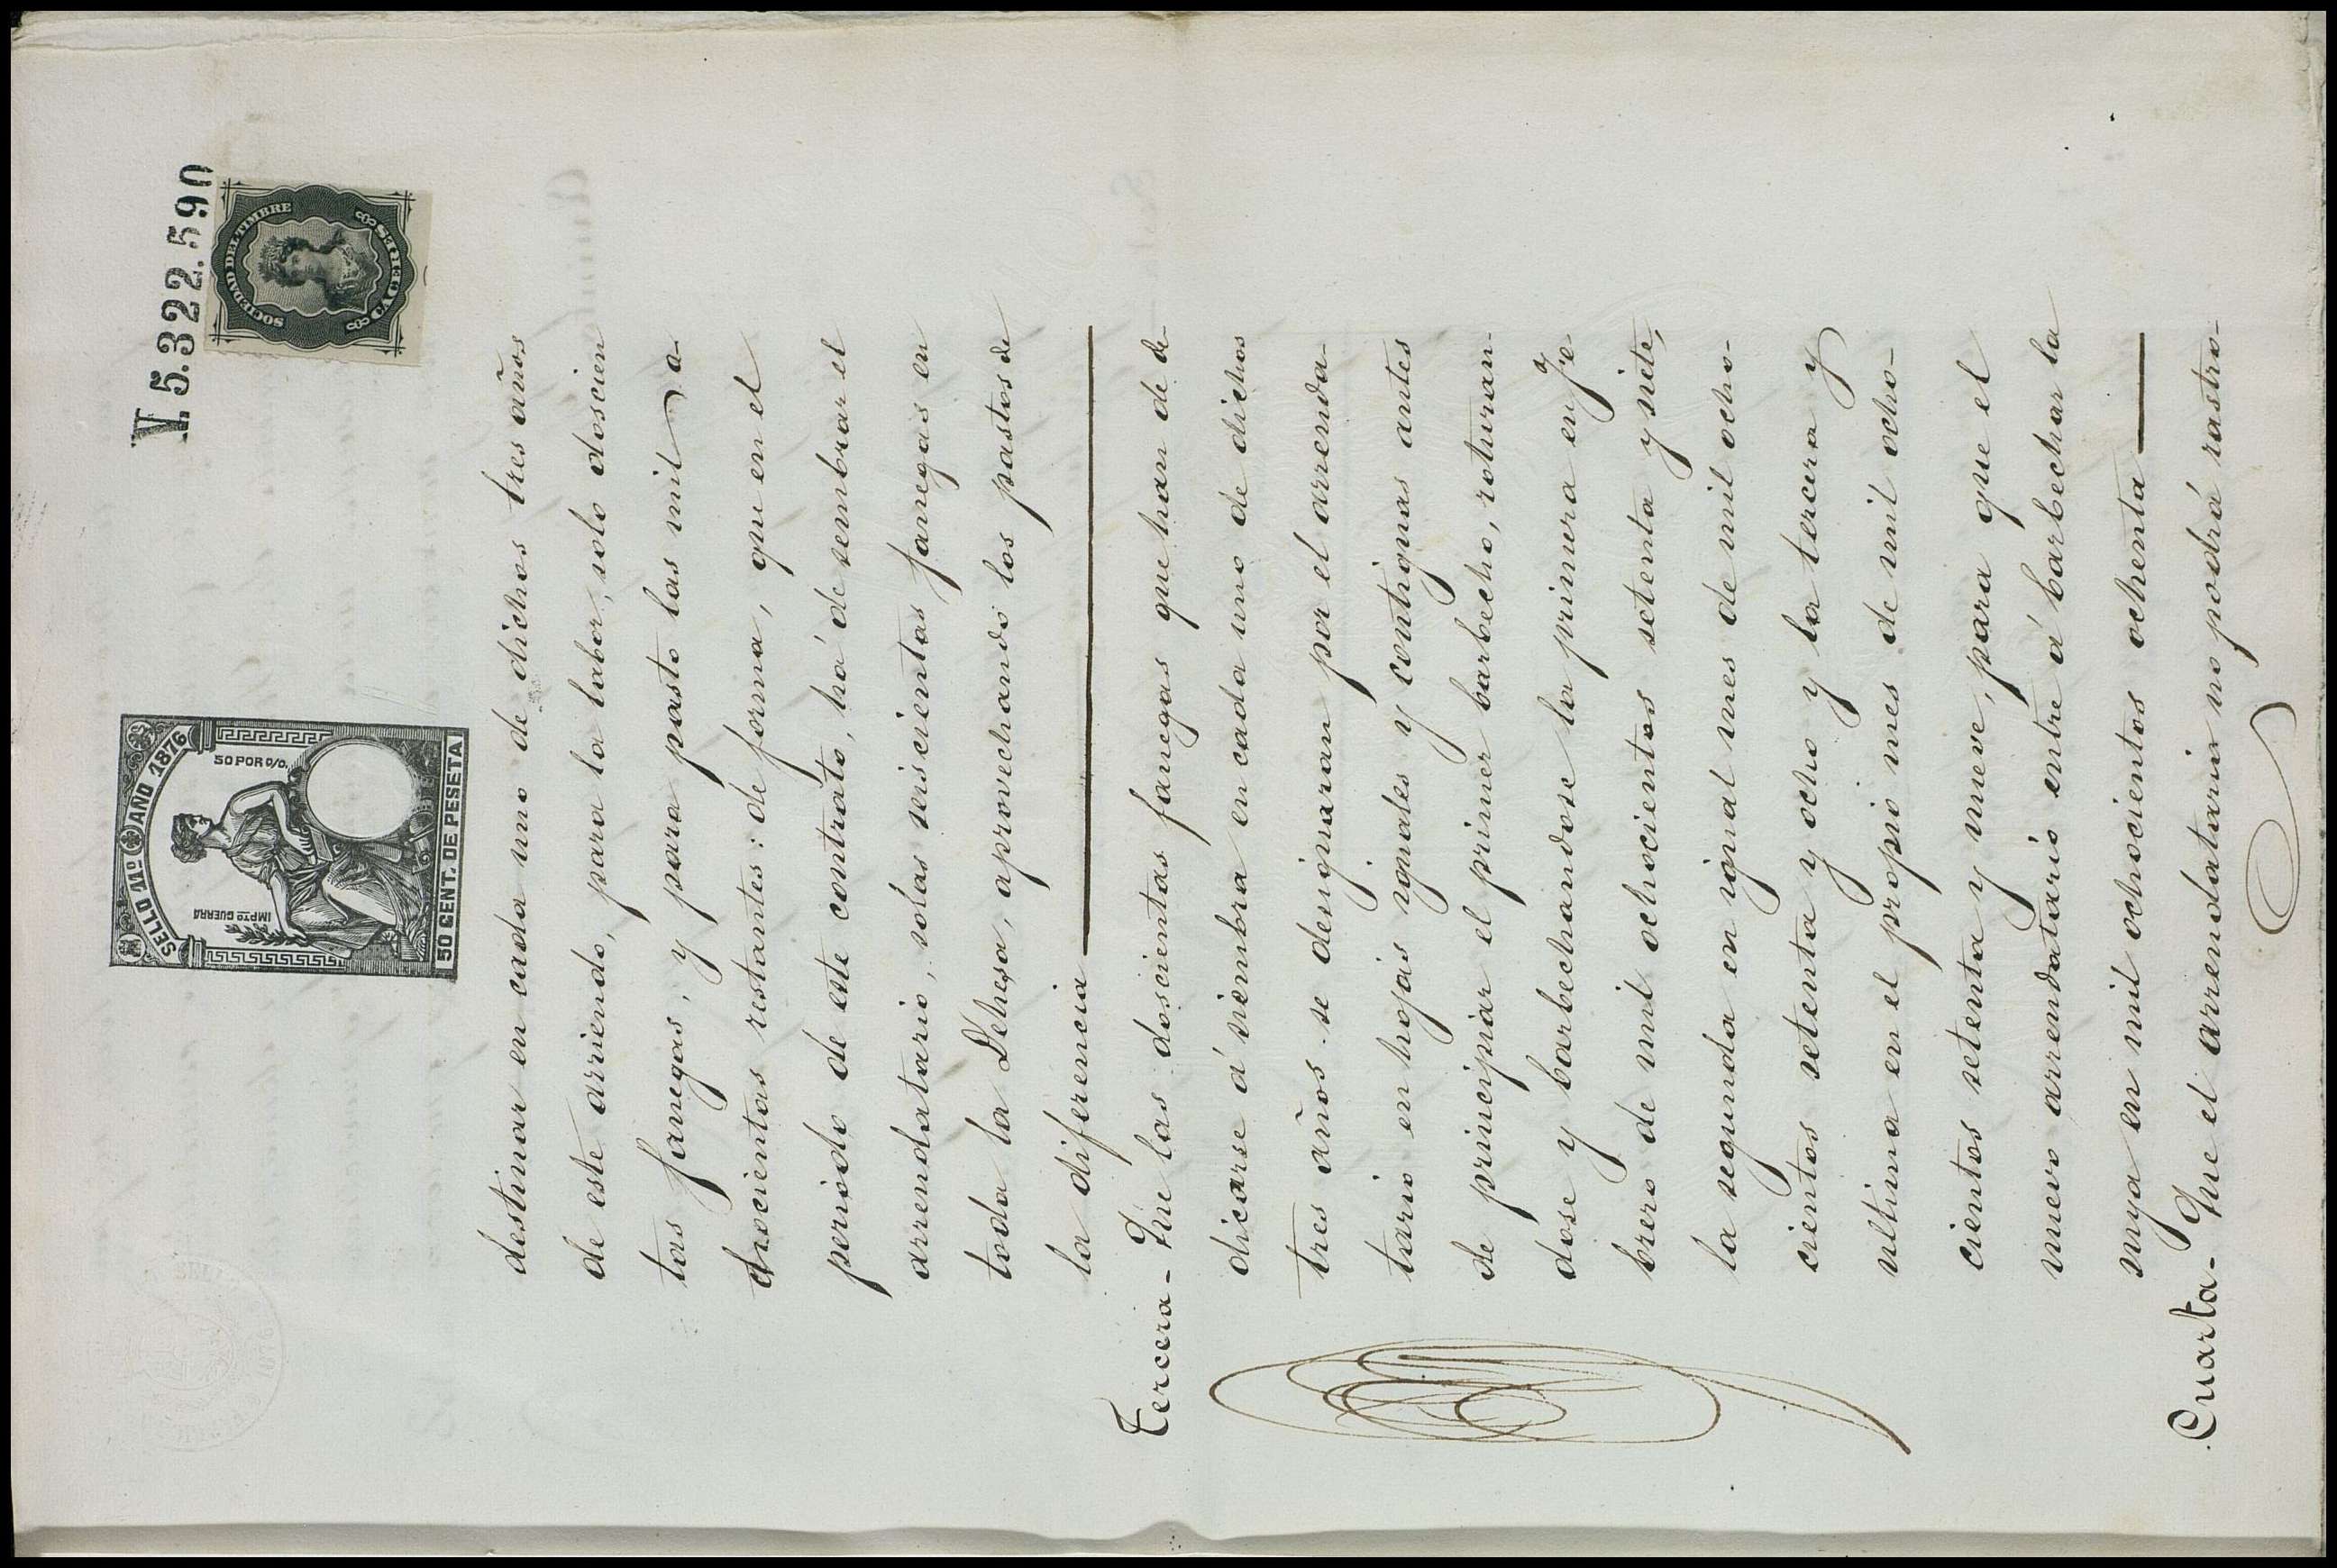 V.5.322.590
SOCIEDAD DEL TIMBRE
SELLO 11º AÑO 1876
50 POR O/O.
IMPTO GUERRA
50 CENT. DE PESETA
destinar en cada uno de dichos tres años
de este arriendo, para la labor, solo doscien
tas fanegas, y para pasto las mil o-
chocientas restantes: de forma, que en el
periodo de este contrato, há de sembrar el
arrendatario, solas seiscientas fanegas en
toda la Dehesa, aprovechando los pastos de
la diferencia
Tercera- Que las doscientas fanegas que han de de-
dicarse á siembra en cada uno de dichos
tres años se designaran por el arrenda-
tario en hojas yguales y contiguas antes
de principiar el primer barbecho, roturan-
dose y barbechandose la primera en Fe
brero de mil ochocientos setenta y siete,
la segunda en igual mes de mil ocho-
cientos setenta y ocho y la tercera y
ultima en el propio mes de mil ocho-
cientos setenta y nueve, para que el
nuevo arrendatario entre á barbechar la
suya en mil ochocientos ochenta
Cuarta- Que el arrendatario no podrá rastro-